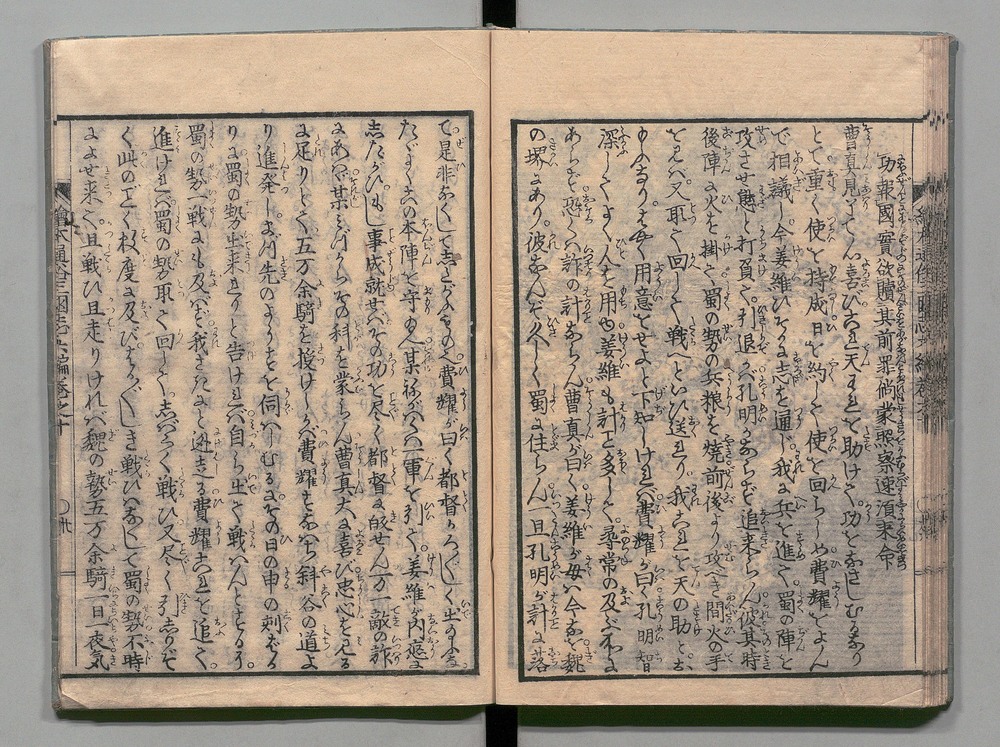 功報國實欲贖其前罪倘蒙照察速須来命
曹真見て大に喜び是天我を助けて功をなさしむるなり
とて重く使を持成日を約して使を回らしめ費耀をよん
で相議し今姜維ひそかに志を通じ我兵を進て蜀の陣を
攻させ態と打負て引退かバ孔明かならずを追来らん彼其時
後陣に火を掛て蜀の勢の兵粮を焼前後より攻べき間火の手
を見バ又取て回して戦へといひ送れり我これを天の助と云
用意をせよと下知しけれバ費耀が曰く孔明智
深してよく人を用ゆ姜維も計を多して尋常の及ぶ所に
あらず恐くハ詐の計ならん曹真が曰く姜維が母ハ今なを魏
の堺にあり彼なんぞ久しく蜀に住らん一旦孔明が計に落
て是非なくして志たがへるもの費耀が曰く都督かろ〴〵しく出
たゞよく此本陣を守り某ねがハくハ一軍を引て姜維が内應に
志たがひもし事成就せバその功を尽く都督に皈せん万一敵の詐
にあハゞ某みづからその科を蒙らん曹真大に喜び忠心を見る
に足りとて五万余騎を授けしかバ費耀すなハち斜谷の道よ
り進発しまづ先のようすを伺ハしむるにその日の申の刻ばか
りに蜀の勢出来れりと告けれバ自ら出て戦ハんとするに
蜀の勢一戦にも及バず我さきにと迯去る費耀これを追て
進けれバ蜀の勢取て回して志バらく戦ひ又尽く引志りぞ
く此のごとく二三度に及びはか〴〵しき戦ひハなくして蜀の勢不時
によせ来て且戦ひ且走りけれバ魏の勢五万余騎一日一夜気
繪本通俗三國志六編巻之十